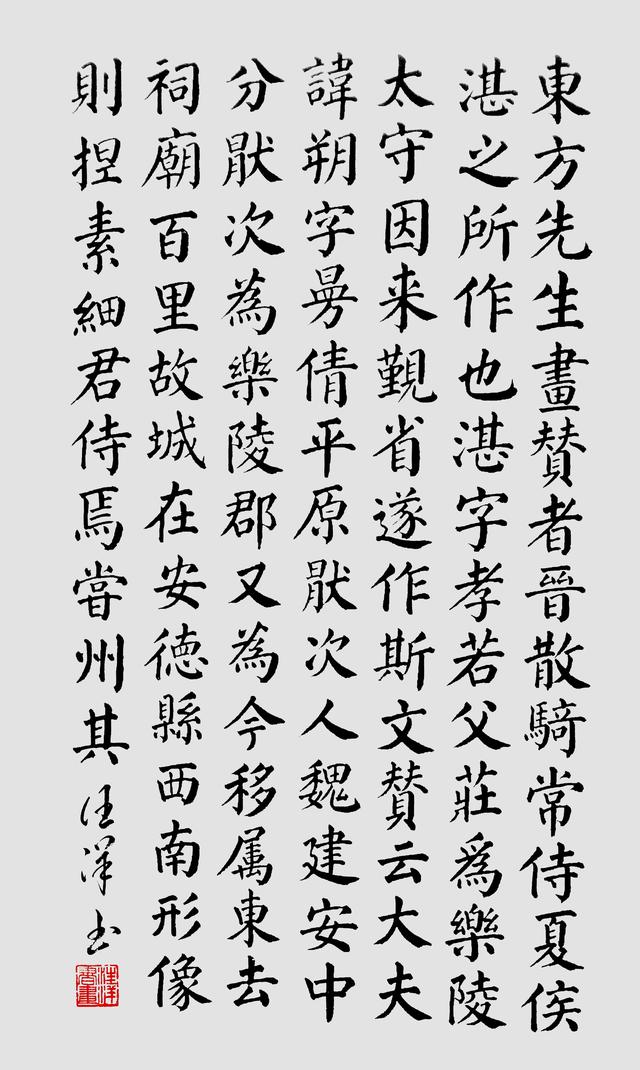 東方先生畫賛者晉散騎常侍夏侯
湛之所作也湛字孝若父莊爲樂陵
太守因来覲省遂作斯文賛云大夫
諱朔字曼倩平原厭次人魏建安中
分厭次為樂陵郡又為今移属東去
祠廟百里故城在安德縣西南形像
則捏素細君侍焉嘗州其
汪洋书
汪洋書畫